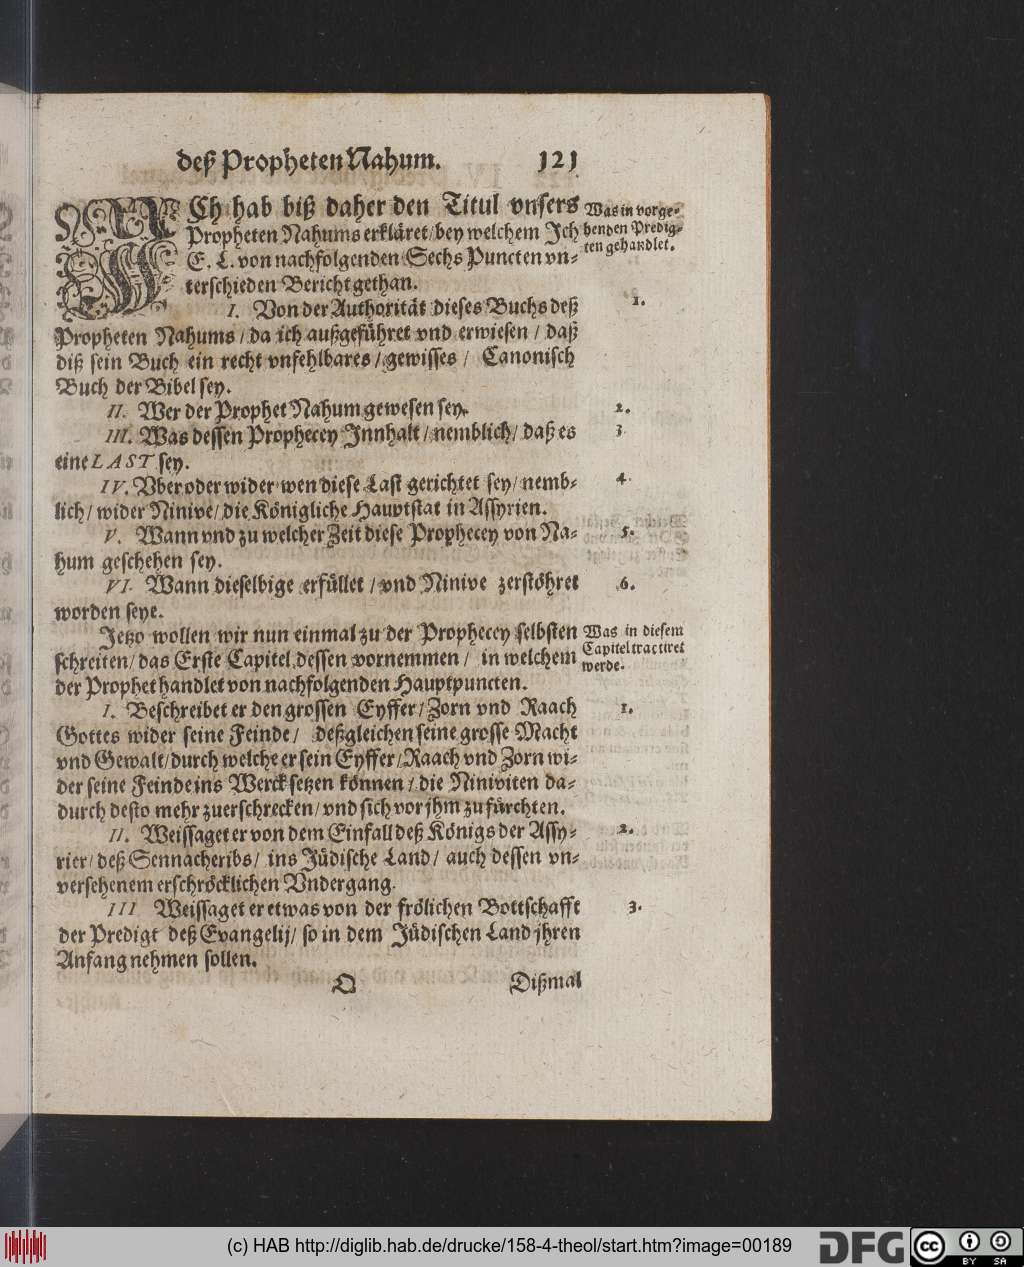 deß Propheten Nahum. 121
ICh hab biß daher den Titul vnsers
Propheten Nahums erkläret/ bey welchem Ich
E. L. von nachfolgenden Sechs Puncten vn-
terschieden Bericht gethan.
Was in vorge-
henden Predig-
ten gehandlet.
I. Von der Authorität dieses Buchs deß 1.
Propheten Nahums/ da ich außgeführet vnd erwiesen/ daß
diß sein Buch ein recht vnfehlbares/ gewisses/ Canonisch
Buch der Bibel sey.
II. Wer der Prophet Nahum gewesen sey. 2.
III. Was dessen Prophecey Innhalt/ nemblich/ daß es 3
eine LAST sey.
IV. Vber oder wider wen diese Last gerichtet sey/ nemb- 4
lich/ wider Ninive/ die Königliche Hauptstat in Assyrien.
V. Wann vnd zu welcher Zeit diese Prophecey von Na- 5.
hum geschehen sey.
VI. Wann dieselbige erfüllet/ vnd Ninive zerstöhret 6.
worden seye.
Jetzo wollen wir nun einmal zu der Prophecey selbsten
schreiten/ das Erste Capitel dessen vornemmen/ in welchem
der Prophet handlet von nachfolgenden Hauptpuncten.
Was in diesem
Capitel tractiret
werde.
I. Beschreibet er den grossen Eyffer/ Zorn vnd Raach 1.
Gottes wider seine Feinde/ deßgleichen seine grosse Macht
vnd Gewalt/ durch welche er sein Eyffer/ Raach vnd Zorn wi-
der seine Feinde ins Werck setzen können/ die Niniviten da-
durch desto mehr zuerschrecken/ vnd sich vor jhm zu fürchten.
II. Weissaget er von dem Einfall deß Königs der Assy- 2.
rier/ deß Sennacheribs/ ins Jüdische Land/ auch dessen vn-
versehenem erschröcklichen Vndergang.
III Weissaget er etwas von der frölichen Bottschafft 3.
der Predigt deß Evangelij/ so in dem Jüdischen Land jhren
Anfang nehmen sollen.
Q Dißmal
(c) HAB http://diglib.hab.de/drucke/158-4-theol/start.htm?image=00189
DFG
cc BY SA